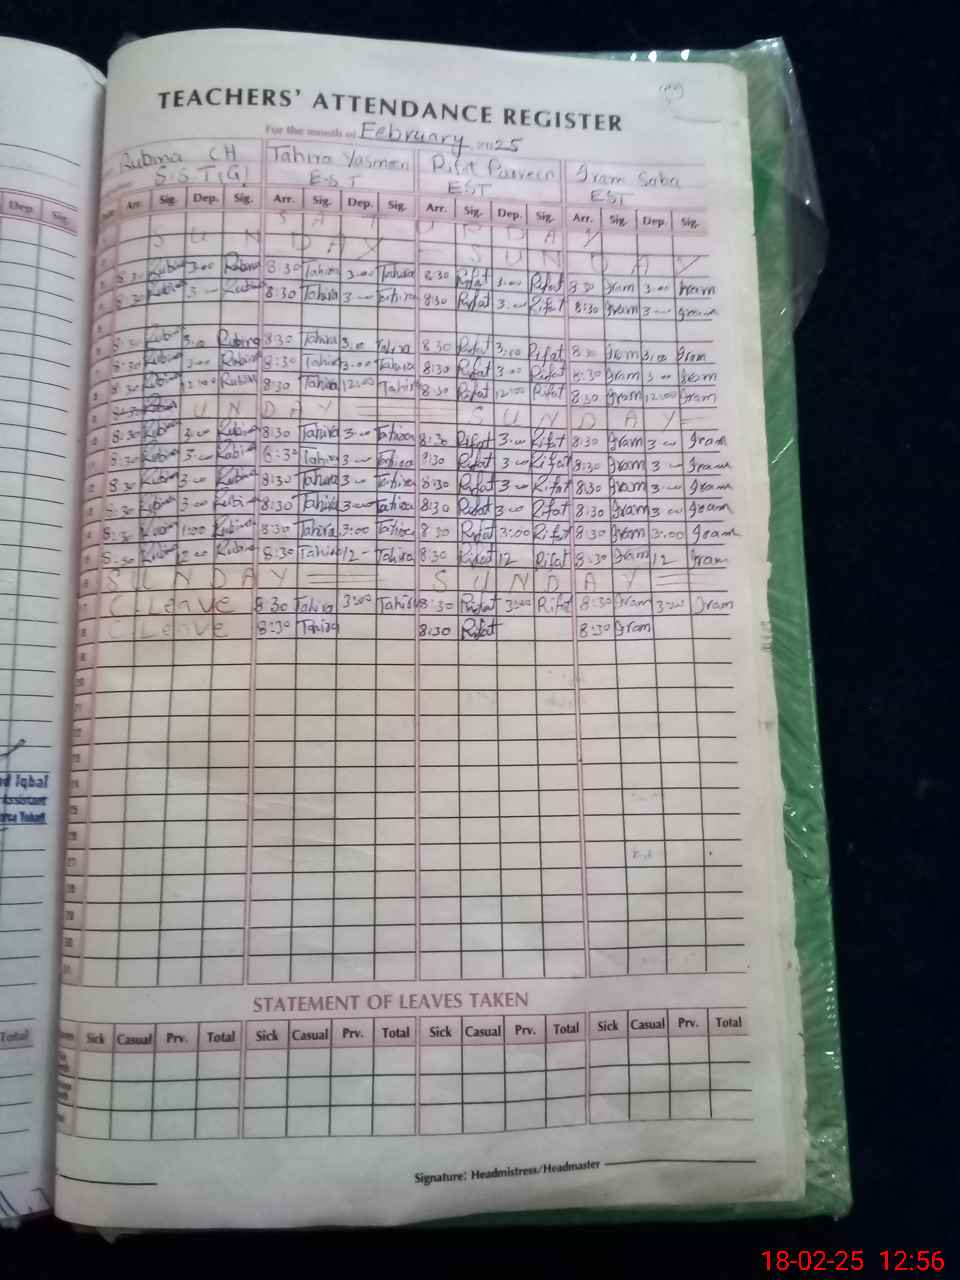 TEACHERS' ATTENDANCE REGISTER
For the month of February 2025
Rubina CH Tahira Yasmeen Rifat Parveen Iram Saba
S.S.T(G) E.S.T EST EST
Dep. Sig. Arr. Sig. Dep. Sig. Arr. Sig. Dep. Sig. Arr. Sig. Dep. Sig. Arr. Sig. Dep. Sig.
S A T U R D A Y
S U N D A Y S U N D A Y
8:30 Rubina 3:00 Rubina 8:30 Tahira 3:00 Tahira 8:30 Rifat 3:00 Rifat 8:30 Iram 3:00 Iram
8:30 Rubina 3:00 Rubina 8:30 Tahira 3:00 Tahira 8:30 Rifat 3:00 Rifat 8:30 Iram 3:00 Iram
8:30 Rubina 3:00 Rubina 8:30 Tahira 3:00 Tahira 8:30 Rifat 3:00 Rifat 8:30 Iram 3:00 Iram
8:30 Rubina 3:00 Rubina 8:30 Tahira 3:00 Tahira 8:30 Rifat 3:00 Rifat 8:30 Iram 3:00 Iram
8:30 Rubina 12:00 Rubina 8:30 Tahira 12:00 Tahira 8:30 Rifat 12:00 Rifat 8:30 Iram 12:00 Iram
U N D A Y S U N D A Y
8:30 Rubina 3:00 Rubina 8:30 Tahira 3:00 Tahira 8:30 Rifat 3:00 Rifat 8:30 Iram 3:00 Iram
8:30 Rubina 3:00 Rubina 8:30 Tahira 3:00 Tahira 8:30 Rifat 3:00 Rifat 8:30 Iram 3:00 Iram
8:30 Rubina 3:00 Rubina 8:30 Tahira 3:00 Tahira 8:30 Rifat 3:00 Rifat 8:30 Iram 3:00 Iram
8:30 Rubina 3:00 Rubina 8:30 Tahira 3:00 Tahira 8:30 Rifat 3:00 Rifat 8:30 Iram 3:00 Iram
8:30 Rubina 1:00 Rubina 8:30 Tahira 3:00 Tahira 8:30 Rifat 3:00 Rifat 8:30 Iram 3:00 Iram
8:30 Rubina Rubina 8:30 Tahira 12 - Tahira 8:30 Rifat 12 Rifat 8:30 Iram 12 Iram
S U N D A Y S U N D A Y
C Leave 8:30 Tahira 3:00 Tahira 8:30 Rifat 3:00 Rifat 8:30 Iram 3:00 Iram
C Leave 8:30 Tahira 8:30 Rifat 8:30 Iram
d Iqbal
Assistant
STATEMENT OF LEAVES TAKEN
Total Sick Casual Prv. Total Sick Casual Prv. Total Sick Casual Prv. Total Sick Casual Prv. Total
Signature: Headmistress/Headmaster
18-02-25 12:56